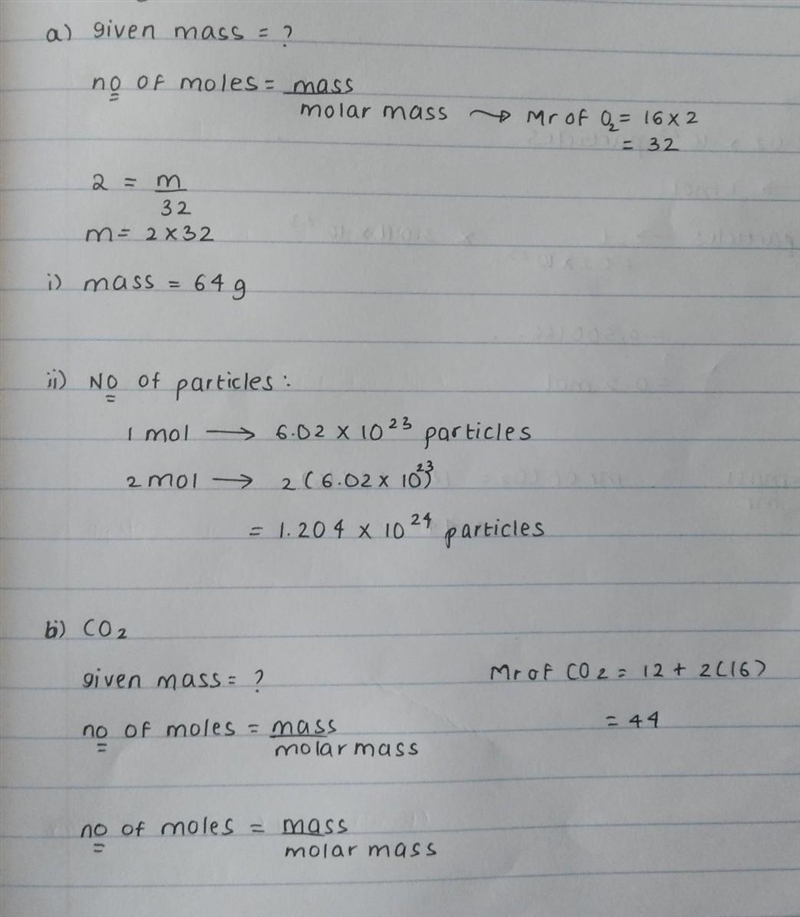 a) given mass = ?
no of moles = mass
molar mass → Mr of O₂ = 16 × 2
= 32
2 = m
32
m = 2 × 32
i) mass = 64 g
ii) NO of particles :
1 mol → 6.02 × 10²³ particles
2 mol → 2 (6.02 × 10²³)
= 1.204 × 10²⁴ particles
bi) CO₂
given mass = ? Mr of CO₂ = 12 + 2(16)
no of moles = mass = 44
molar mass
no of moles = mass
molar mass